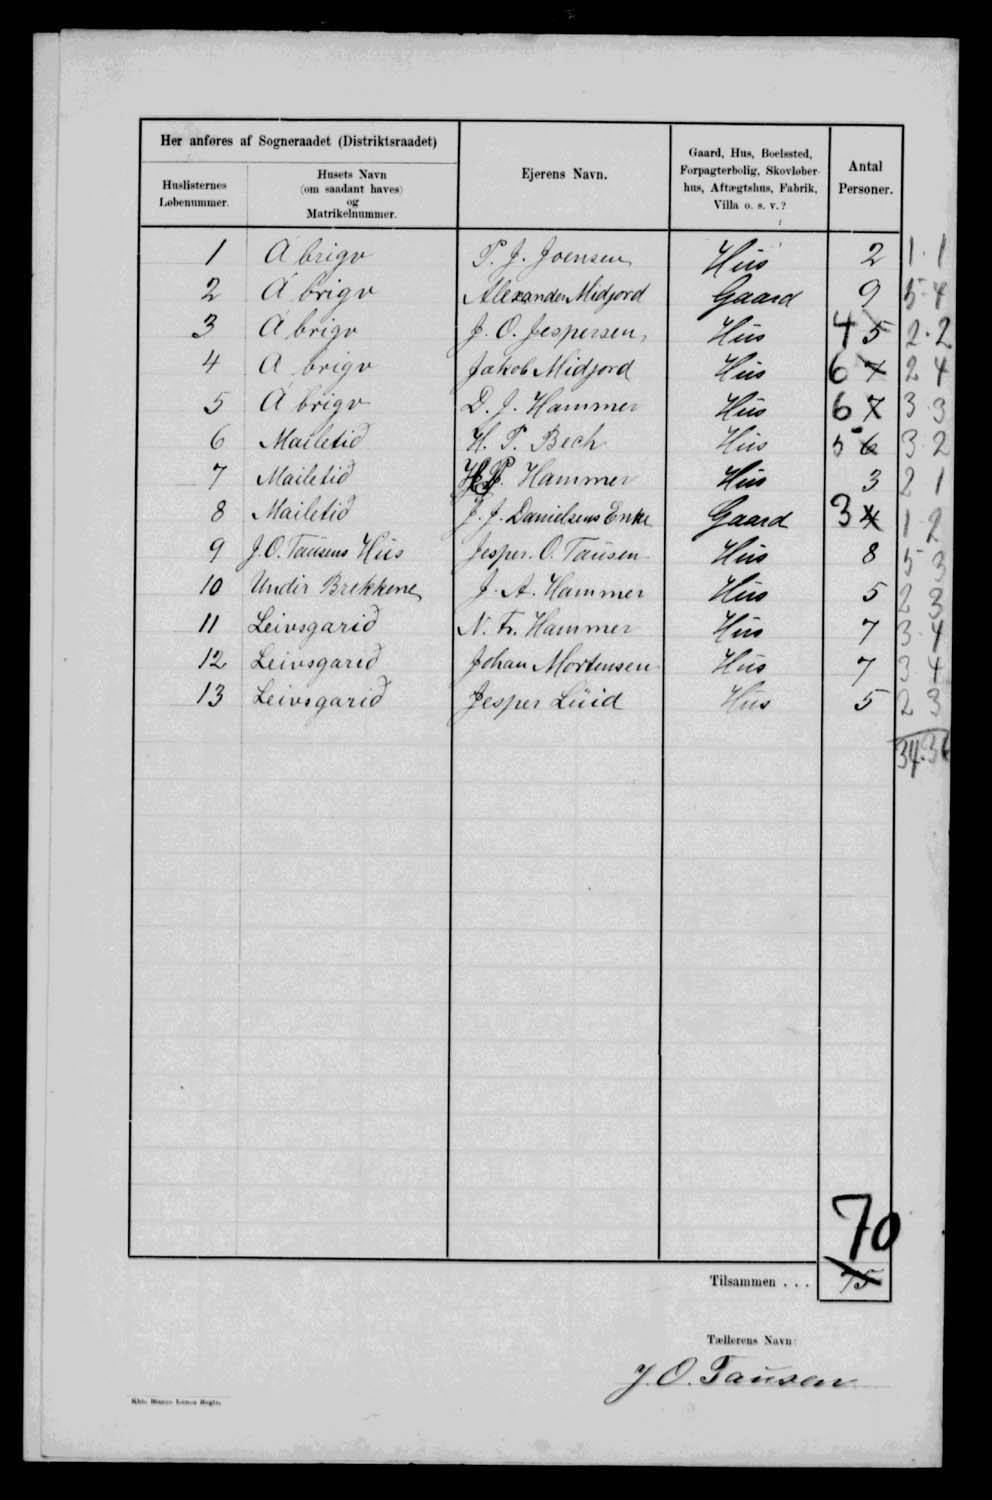 Her anføres af Sogneraadet (Distriktsraadet)
Huslisternes Løbenummer.
Husets Navn (om saadant haves) og Matrikelnummer.
Ejerens Navn.
Gaard, Hus, Boelssted, Forpagterbolig, Skovløberhus, Aftægtshus, Fabrik, Villa o. s. v.?
Antal Personer.
1 Á brigv P. J. Joensen Hus 2 1 · 1
2 Á brigv Alexander Midjord Gaard 9 5 · 4
3 Á brigv J. O. Jespersen Hus 4 5 2 · 2
4 Á brigv Jakob Midjord Hus 6 7 2 4
5 Á brigv D. J. Hammer Hus 6 7 3 3
6 Mailetid H. P. Bech Hus 5 6 3 · 2
7 Mailetid Hammer Hus 3 2 1
8 Mailetid J. J. Danielsens Enke Gaard 3 4 1 · 2
9 J. O. Tausens Hus Jesper O. Tausen Hus 8 5 3
10 Undir Brekkene J. A. Hammer Hus 5 2 3
11 Leivsgarid N. Fr. Hammer Hus 7 3 · 4
12 Leivsgarid Johan Mortensen Hus 7 3 4
13 Leivsgarid Jesper Lüid Hus 5 2 3
34 · 36
70
Tilsammen . . . 75
Tællerens Navn:
J. O. Tausen
Kbh. Bianco Lunos Bogtr.